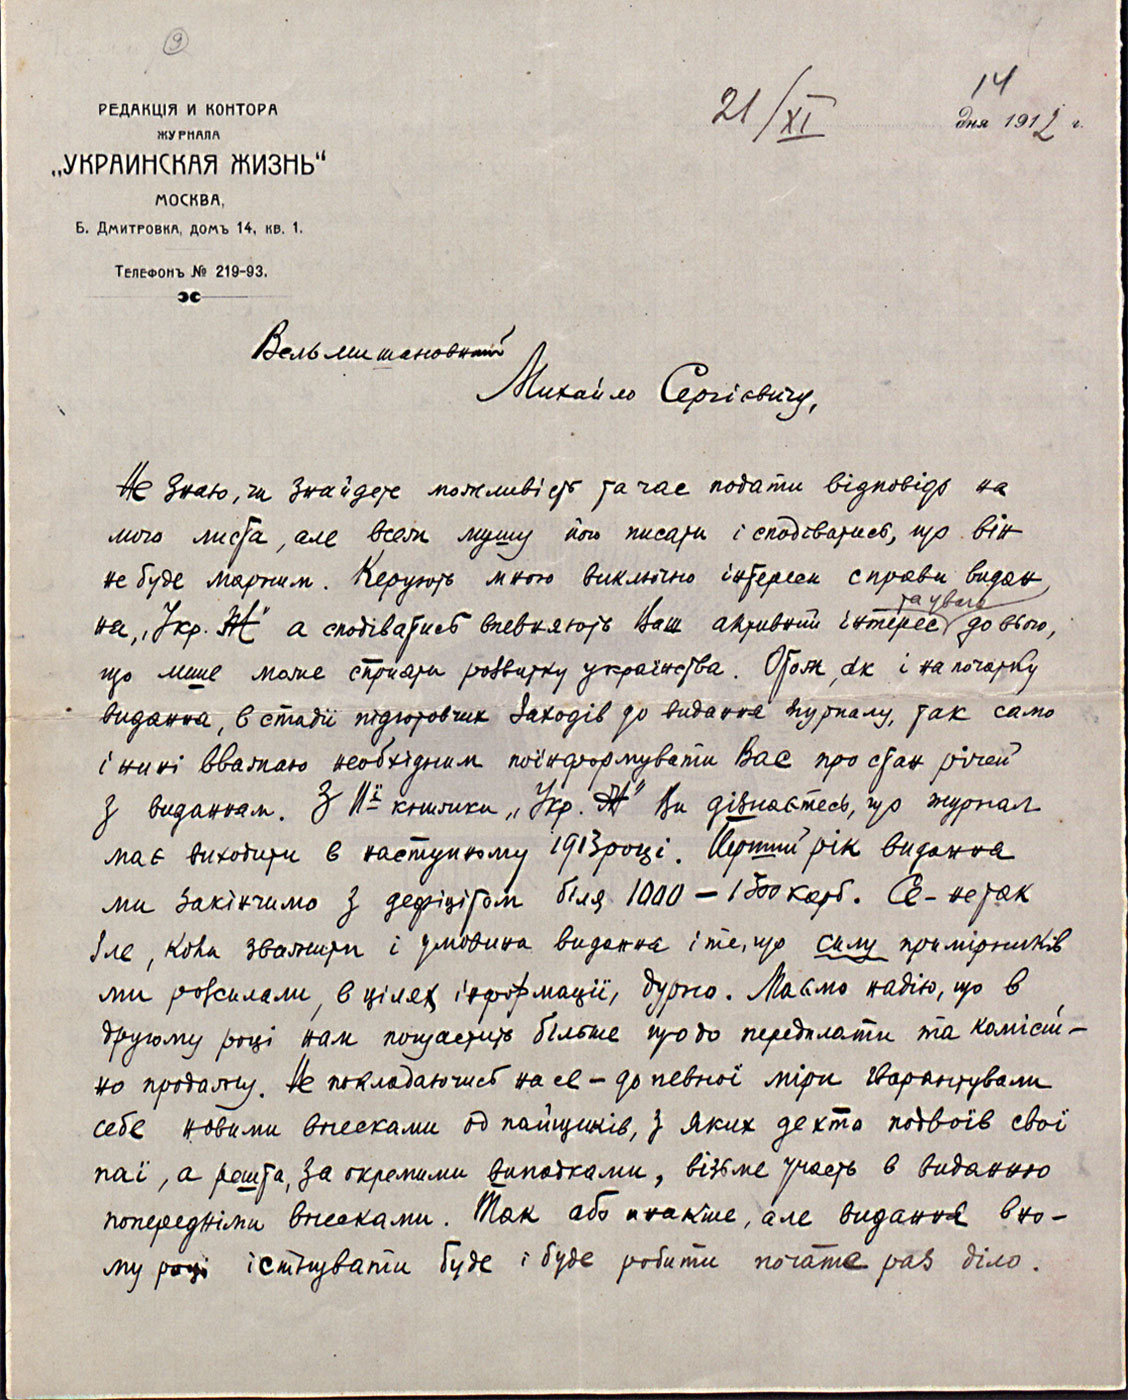 9
РЕДАКЦІЯ И КОНТОРА
ЖУРНАЛА
„УКРАИНСКАЯ ЖИЗНЬ“
МОСКВА,
Б. Дмитровка, домъ 14, кв. 1.
Телефонъ № 219-93.
14
21/XI дня 1912 г.
Вельмишановний
Михайло Сергієвичу,
Не знаю, чи знайдете можливість та час подати відповідь на
мого листа, але всеж мушу його писати і сподіватись, що він
не буде марним. Керують мною виключно інтереси справи видан
та увага
на „Укр. Ж“ а сподіватись впевняють Ваш активний інтерес до всього,
що лише може сприяти розвитку українства. Отож, як і на початку
видання, в стадії підготовчих заходів до видання журналу, так само
і нині вважаю необхідним поінформувати Вас про стан річей
з виданням. З 11ї книжки „Укр. Ж“ Ви дізнаєтесь, що журнал
має виходити в наступному 1913 році. Перший рік видання
ми закінчимо з дефіцітом біля 1000 – 1500 карб. Се – не так
зле, коли зважити і умовини видання і те, що силу примірників
ми розсилали, в цілях інформації, дурно. Маємо надію, що в
другому році нам пощастить більше що до передплати та комісій-
но продажу. Не покладаючись на се – до певної міри гварантували
себе новими внесками од пайщиків, з яких дехто подвоїв свої
паї, а решта, за окремими випадками, візьме участь в виданню
попередніми внесками. Так або инакше, але видання в но-
му році істнувати буде і буде робити почате раз діло.